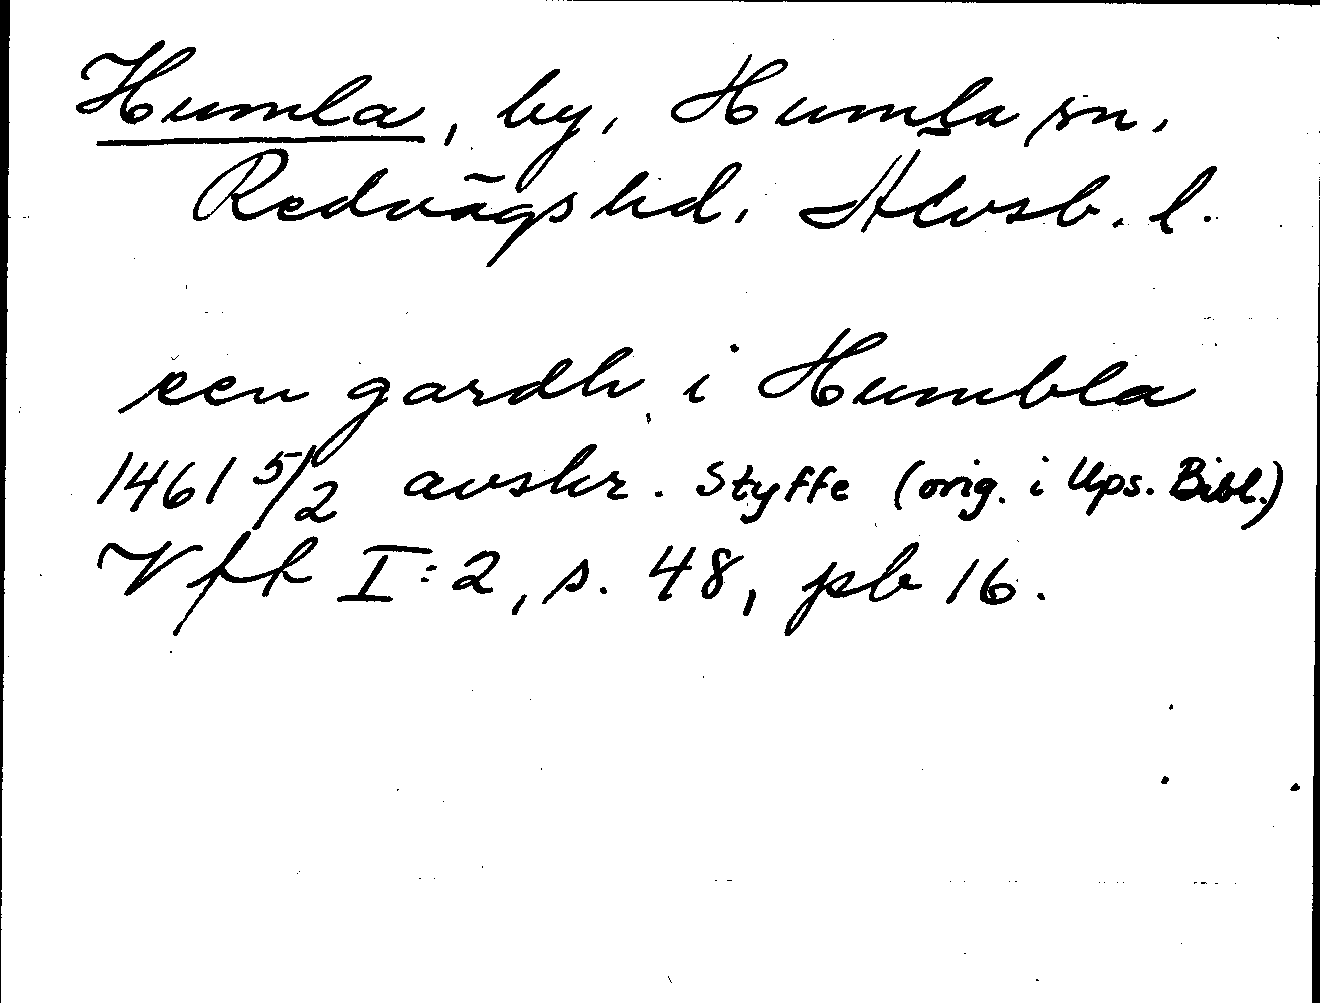 Humla, by, Humla sn,
Redvägs hd, Älvsb. l.
een gardh i Humbla
1461 5/2 avskr. Styffe (orig. i Ups. Bibl.)
Vfk I:2, s. 48, pb 16.